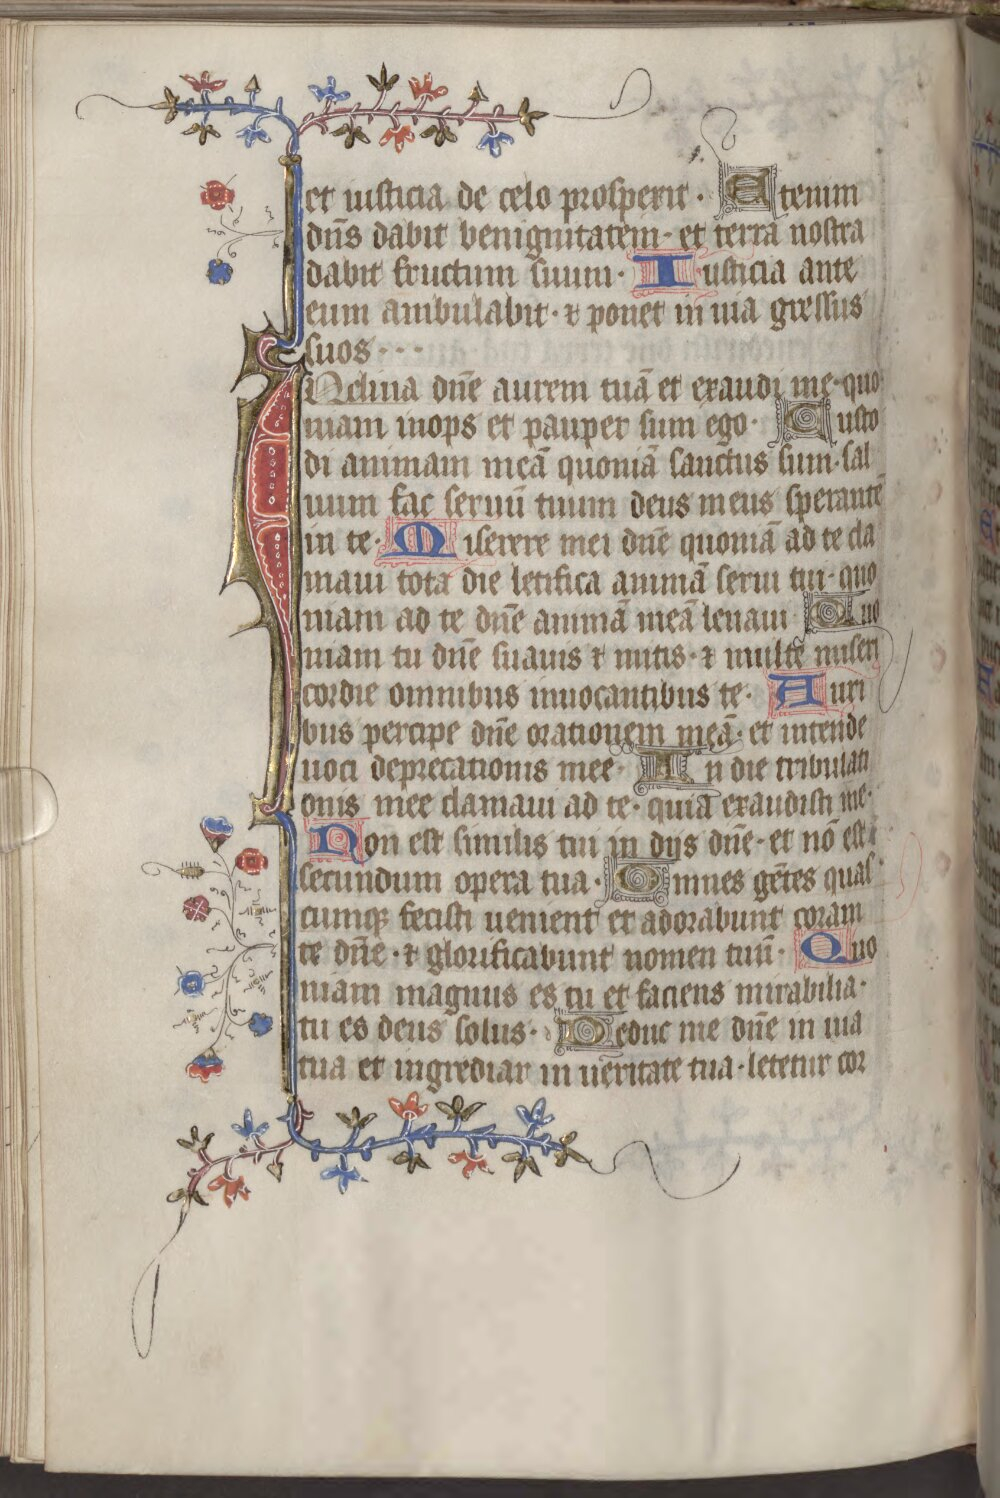 et iusticia de celo prosperit · Etenim
dn̄s dabit benignitatem · et terra nostra
dabit fructum suum · Iusticia ante
eum ambulabit · ⁊ ponet in uia gressus
suos · · ·
INclina dn̄e aurem tuā et exaudi me · quo
niam inops et pauper sum ego · Custo
di animam meā quoniā sanctus sum · sal
uum fac seruū tuum deus meus sperantē
in te · Miserere mei dn̄e quoniā ad te cla
maui tota die letifica animā serui tui · quo
niam ad te dn̄e animā meā leuaui Quo
niam tu dn̄e suauis ⁊ mitis · ⁊ multe miseri
cordie omnibus inuocantibus te · Auri
bus percipe dn̄e orationem meā · et intende
uoci deprecationis mee · In die tribulati
onis mee clamaui ad te · quia exaudisti me ·
Non est similis tui in dijs dn̄e · et nō est
secundum opera tua · Omnes gētes quas
cumqꝫ fecisti uenient et adorabunt coram
te dn̄e · ⁊ glorificabunt nomen tuū · Quo
niam magnus es tu et faciens mirabilia ·
tu es deus solus · Deduc me dn̄e in uia
tua et ingrediar in ueritate tua · letetur cor